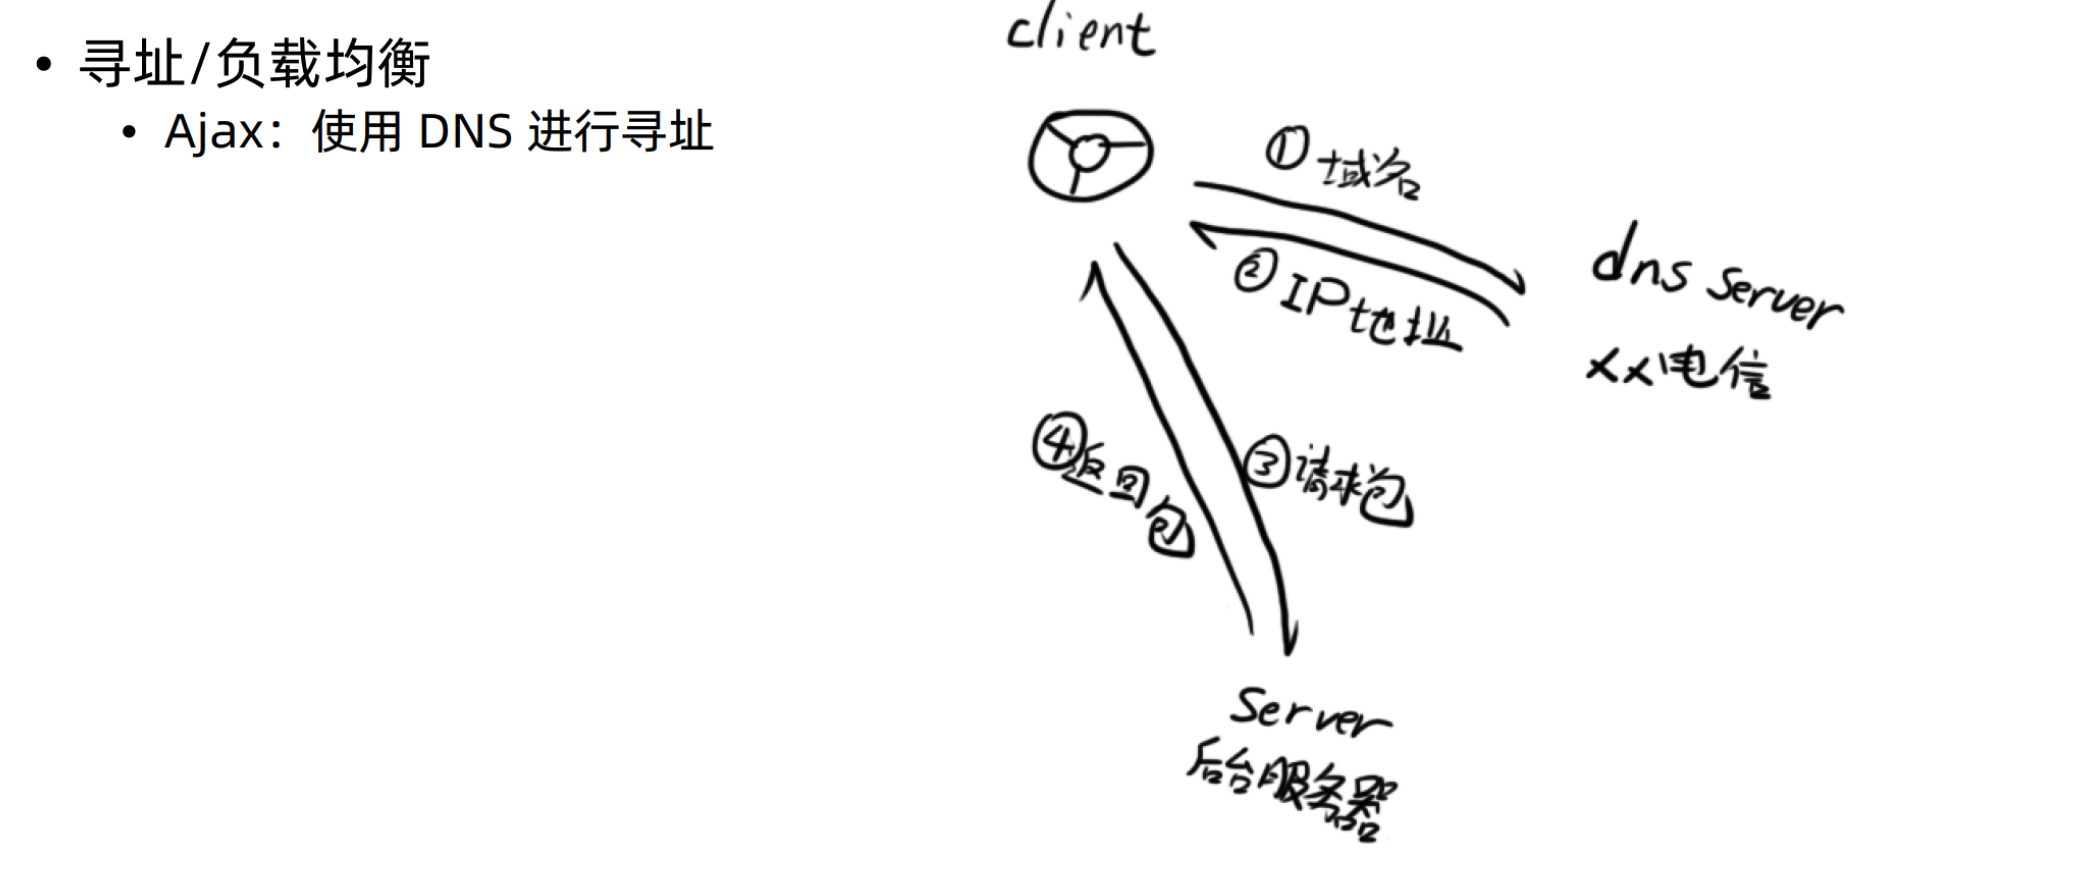 • 寻址/负载均衡
• Ajax：使用 DNS 进行寻址
client
① 域名
② IP地址
dns server
xx电信
③ 请求包
④ 返回包
Server
后台服务器